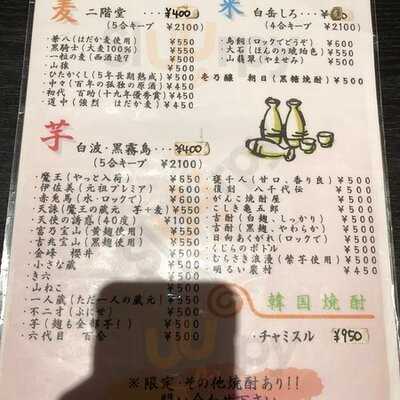 麦
二階堂 ・・・¥400
(5合キープ ¥2100)
・若八(はだか麦使用) ¥550
・黒騎士(大麦100%) ¥550
・一粒の麦(西酒造) ¥550
・山猿 ¥550
・ひたかくし(5年長期熟成) ¥500
・中々(百年の孤独の原酒) ¥450
・和代 百助(十九年優秀賞) ¥450
・道中(強烈 はだか麦) ¥450
米
白岳しろ・・
(4合キープ ¥2100)
・鳥飼(ロックでどうぞ) ¥600
・大石(ほんのり琥珀色) ¥550
・山翡翠(やませみ) ¥550
壱乃醸 朝日(黒糖焼酎) ¥500
芋
白波・黒霧島・・¥400
(5合キープ ¥2100)
・魔王(やっと入荷) ¥650
・伊佐美(元祖プレミア) ¥600
・赤兎馬(水・ロックで) ¥600
・天誅(魔王の蔵元 芋+麦) ¥550
・天使の誘惑(40度) ¥1000
・富乃宝山(黄麹使用) ¥550
・吉兆宝山(黒麹使用) ¥550
・金峰 櫻井 ¥500
・小さな蔵 ¥500
・き六 ¥500
・山ねこ ¥500
・一人蔵(ただ一人の蔵元) ¥500
・不二才(ぶにせ) ¥500
・芋(麹も全部芋!) ¥500
・六代目 百合 ¥500
・甕千人(甘口、香り良) ¥500
・復刻 八千代伝 ¥500
・がんこ焼酎屋 ¥500
・こしき亀五郎 ¥500
・吉酎(白麹、しっかり) ¥500
・吉酎(黒麹、やわらか) ¥500
・日向あくがれ(ロックで) ¥500
・くじらのボトル ¥500
・むらさき浪漫(紫芋使用) ¥500
・明るい農村 ¥450
韓国焼酎
・チャミスル ¥950
※限定・その他焼酎あり!!
問い合わせ下さい